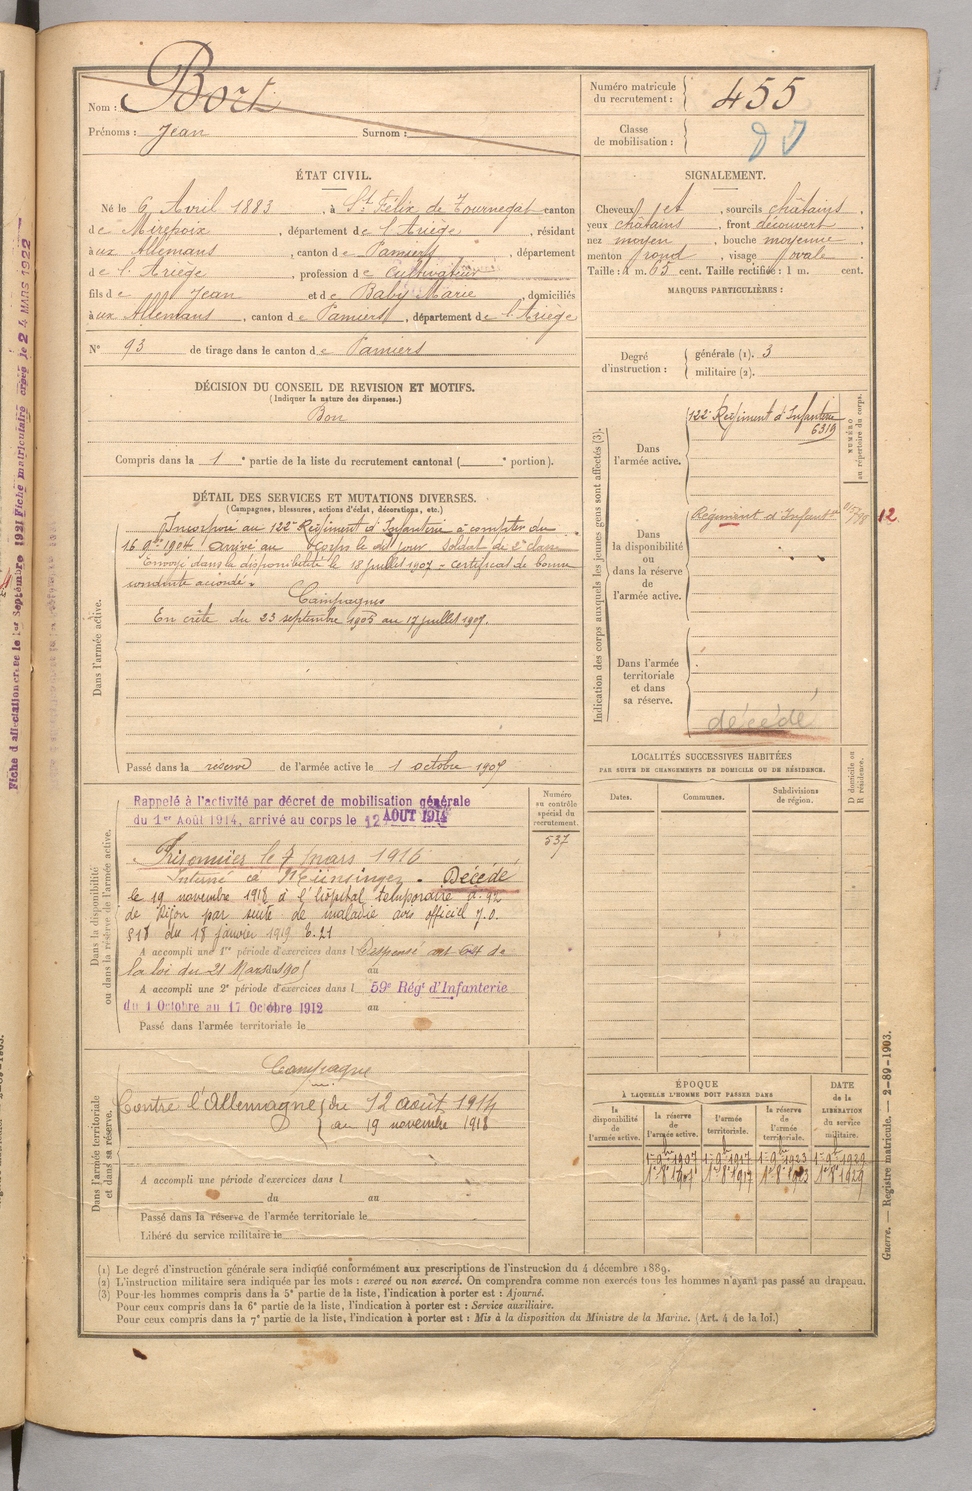 Nom : Bort
Prénoms : Jean Surnom :
ÉTAT CIVIL.
Né le 6 Avril 1883, à St Félix de Tournegat canton
de Mirepoix, département de l'Ariège, résidant
à ux Allemans, canton de Pamiers, département
de l'Ariège, profession de Cultivateur
fils de Jean et de Baby Marie, domiciliés
à ux Allemans, canton de Pamiers, département de l'Ariège
N° 93 de tirage dans le canton de Pamiers
DÉCISION DU CONSEIL DE REVISION ET MOTIFS.
(Indiquer la nature des dispenses.)
Bon
Compris dans la 1e partie de la liste du recrutement cantonal ( e portion).
DÉTAIL DES SERVICES ET MUTATIONS DIVERSES.
(Campagnes, blessures, actions d'éclat, décorations, etc.)
Dans l'armée active.
Incorporé au 122e Régiment d'Infanterie à compter du
16 9bre 1904 arrivé au corps le dit jour soldat de 2e classe
Envoyé dans la disponibilité le 18 juillet 1907 - certificat de bonne
conduite accordé.
Campagnes
En crête du 23 septembre 1905 au 17 juillet 1907.
Passé dans la réserve de l'armée active le 1 octobre 1907
Dans la disponibilité
ou dans la réserve de l'armée active.
Rappelé à l'activité par décret de mobilisation générale
du 1er Août 1914, arrivé au corps le 12 AOUT 1914
Prisonnier le 7 mars 1916
Interné à Münsingen. Décédé
le 19 novembre 1918 à l'hôpital temporaire d. 92
de Dijon par suite de maladie avis officiel 7.0.
818 du 18 janvier 1919 E.21
A accompli une 1re période d'exercices dans l Dispensé art 64 de
la loi du 21 Mars 1905 au
A accompli une 2e période d'exercices dans l 59e Régt d'Infanterie
du 1 Octobre au 17 Octobre 1912 au
Passé dans l'armée territoriale le
Numéro
au contrôle
spécial du
recrutement.
537
Dans l'armée territoriale
et dans sa réserve.
Campagne
Contre l'Allemagne du 12 août 1914
au 19 novembre 1918
A accompli une période d'exercices dans l
du au
Passé dans la réserve de l'armée territoriale le
Libéré du service militaire le
Numéro matricule
du recrutement : 455
Classe
de mobilisation :
SIGNALEMENT.
Cheveux et, sourcils châtains,
yeux châtains, front découvert,
nez moyen, bouche moyenne,
menton rond, visage ovale
Taille : 1 m. 65 cent. Taille rectifiée : 1 m. cent.
MARQUES PARTICULIÈRES :
Degré
d'instruction :
générale (1). 3
militaire (2).
Indication des corps auxquels les jeunes gens sont affectés (3).
NUMÉRO
au répertoire du corps.
Dans
l'armée active.
122e Régiment d'Infanterie
6319
Dans
la disponibilité
ou
dans la réserve
de
l'armée active.
Régiment d'Infantie
12
Dans l'armée
territoriale
et dans
sa réserve.
décédé
LOCALITÉS SUCCESSIVES HABITÉES
PAR SUITE DE CHANGEMENTS DE DOMICILE OU DE RÉSIDENCE.
Dates.
Communes.
Subdivisions
de région.
D domicile ou
R résidence.
ÉPOQUE
À LAQUELLE L'HOMME DOIT PASSER DANS
la
disponibilité
de
l'armée active.
la réserve
de
l'armée active.
l'armée
territoriale.
la réserve
de
l'armée
territoriale.
DATE
de la
LIBÉRATION
du service
militaire.
1er 9bre 1907 1er 9bre 1917 1er 9bre 1923 1er 9bre 1929
1er 8bre 1907 1er 8bre 1917 1er 8bre 1923 1er 8bre 1929
(1) Le degré d'instruction générale sera indiqué conformément aux prescriptions de l'instruction du 4 décembre 1889.
(2) L'instruction militaire sera indiquée par les mots : exercé ou non exercé. On comprendra comme non exercés tous les hommes n'ayant pas passé au drapeau.
(3) Pour les hommes compris dans la 5e partie de la liste, l'indication à porter est : Ajourné.
Pour ceux compris dans la 6e partie de la liste, l'indication à porter est : Service auxiliaire.
Pour ceux compris dans la 7e partie de la liste, l'indication à porter est : Mis à la disposition du Ministre de la Marine. (Art. 4 de la loi.)
Guerre. — Registre matricule. — 2-89-1903.
Fiche d'affectation créée le 1er Septembre 1921 Fiche matriculaire créée le 24 MARS 1922